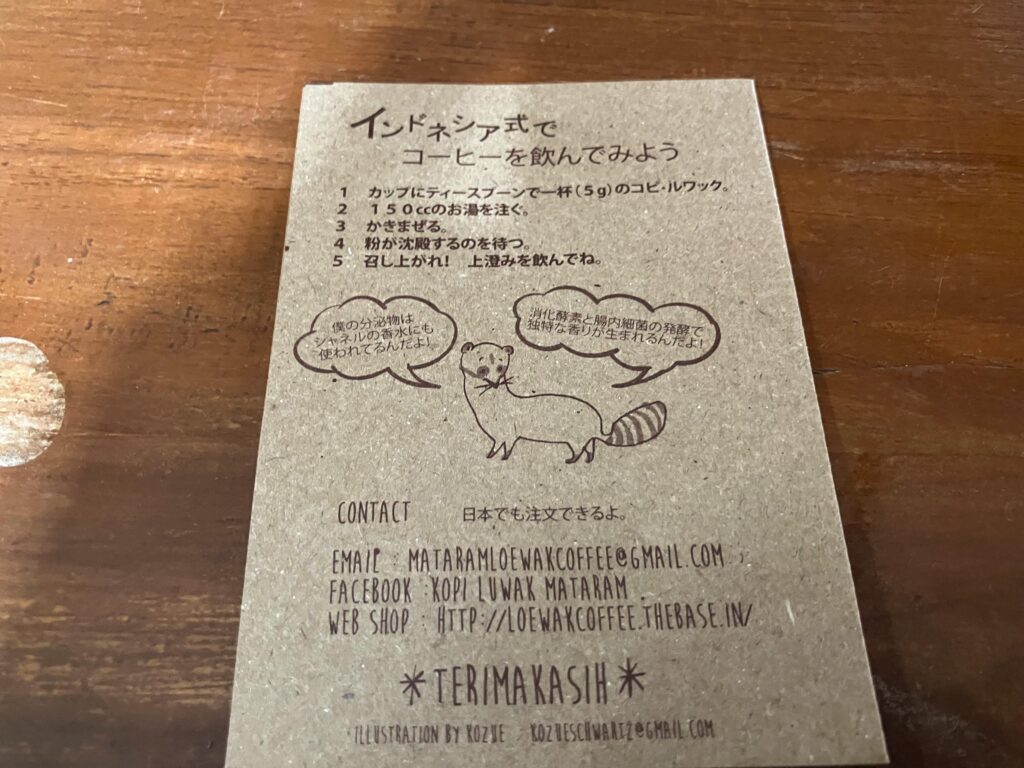 インドネシア式で
コーヒーを飲んでみよう
1 カップにティースプーンで一杯(5g)のコピ・ルワック。
2 150ccのお湯を注ぐ。
3 かきまぜる。
4 粉が沈殿するのを待つ。
5 召し上がれ! 上澄みを飲んでね。
僕の分泌物は
シャネルの香水にも
使われてるんだよ!
消化酵素と腸内細菌の発酵で
独特な香りが生まれるんだよ!
CONTACT 日本でも注文できるよ。
EMAIL : MATARAMLOEWAKCOFFEE@GMAIL.COM
FACEBOOK : KOPI LUWAK MATARAM
WEB SHOP : HTTP://LOEWAKCOFFEE.THEBASE.IN/
*TERIMAKASIH*
ILLUSTRATION BY KOZUE KOZUESCHWARTZ@GMAIL.COM